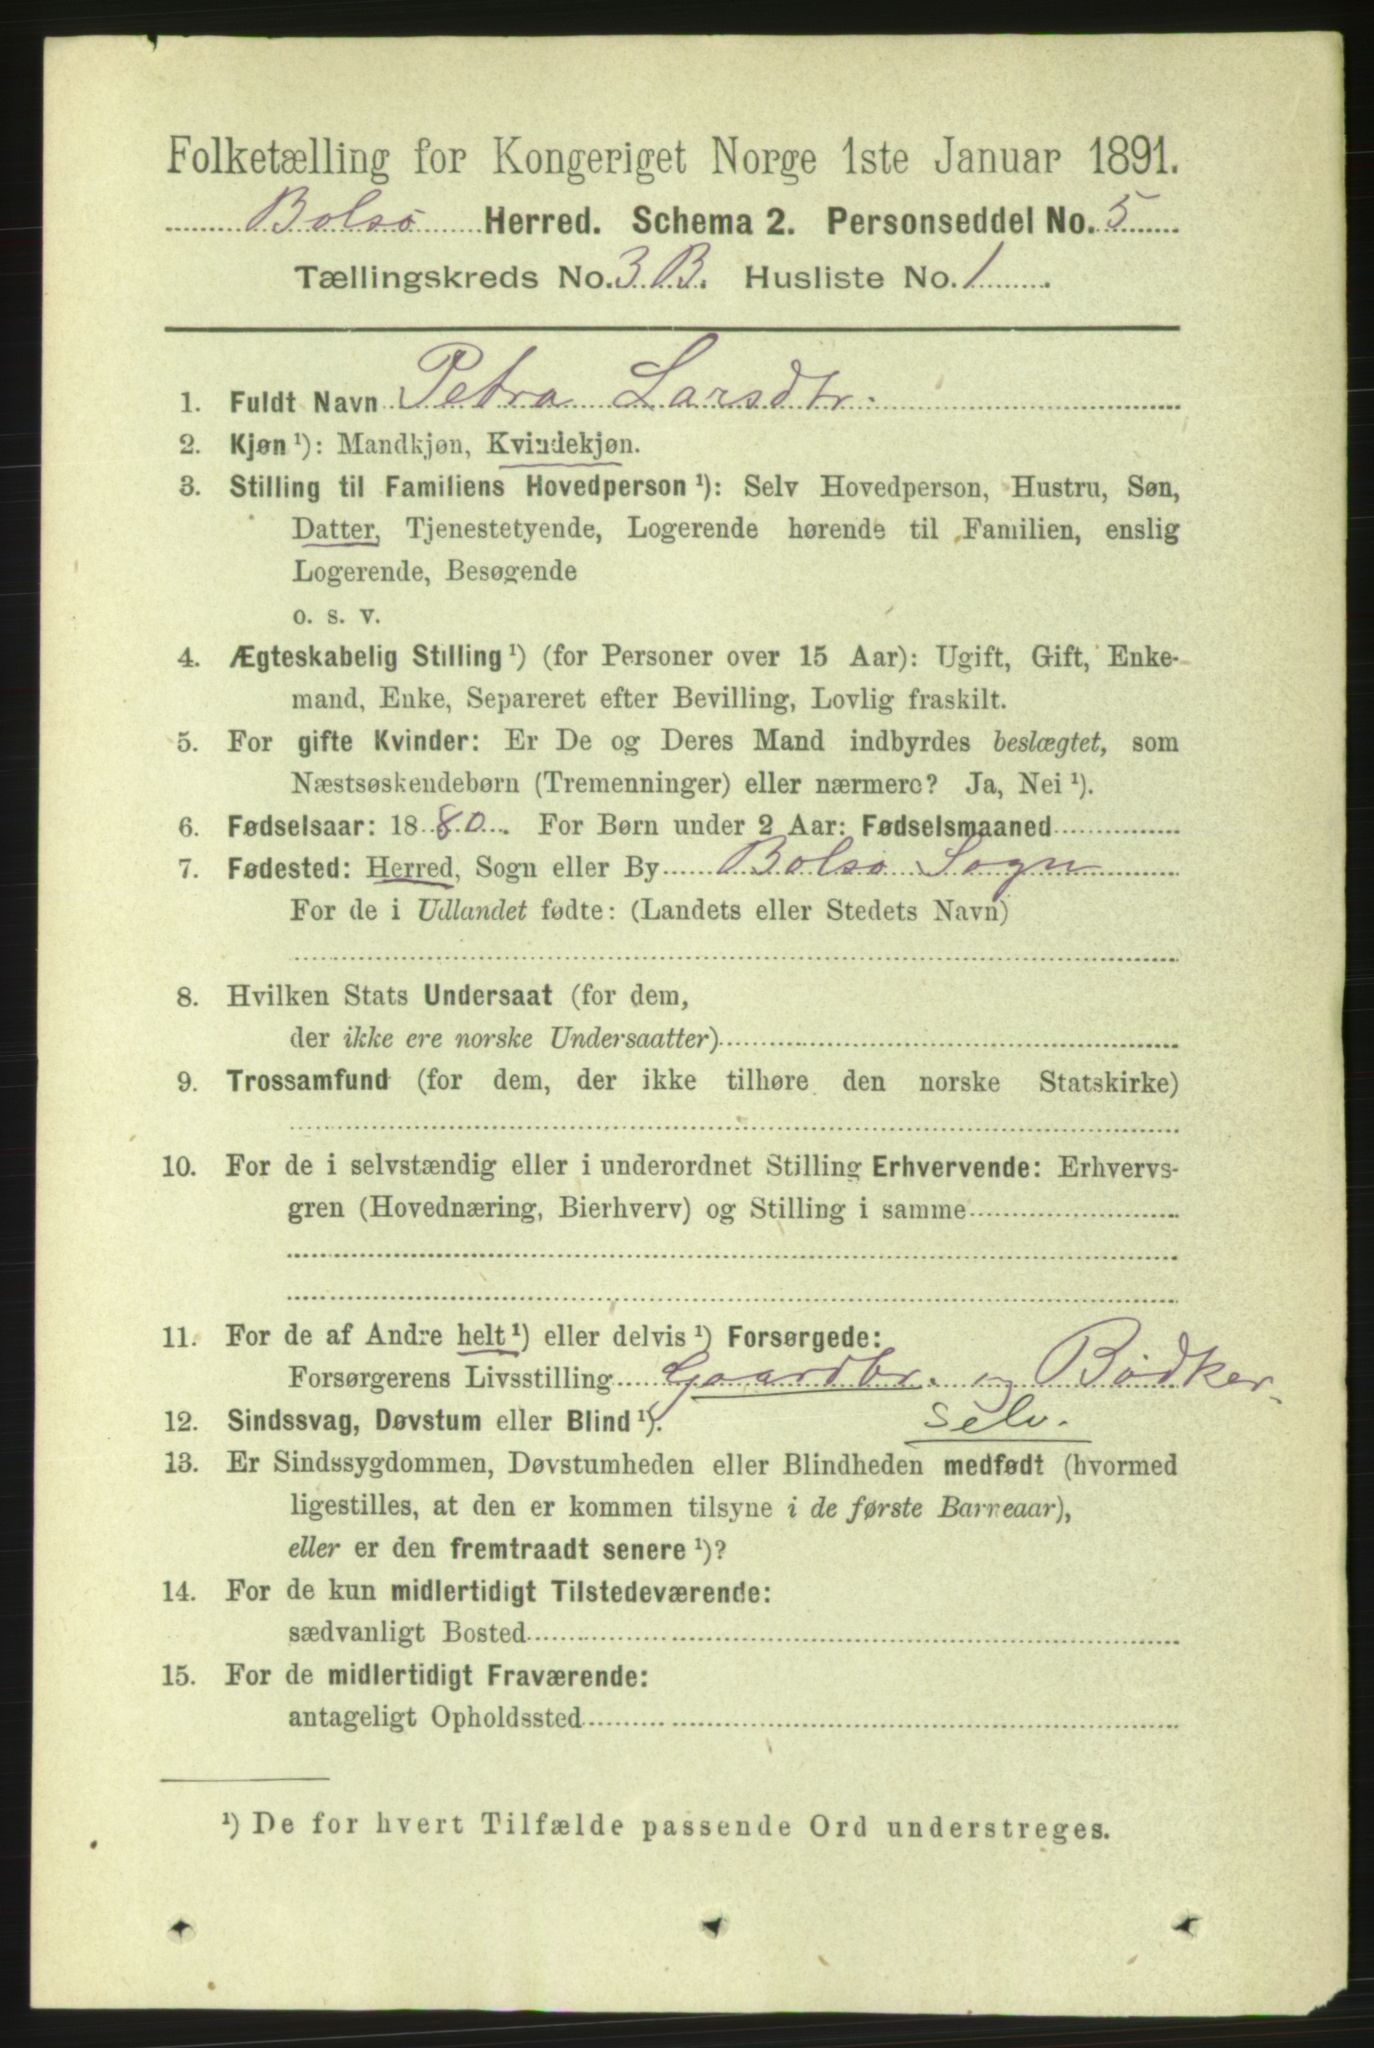 Folketælling for Kongeriget Norge 1ste Januar 1891.
Bolsø Herred. Schema 2. Personseddel No. 5
Tællingskreds No. 3 B. Husliste No. 1
1. Fuldt Navn Petra Larsdtr.
2. Kjøn ¹): Mandkjøn, Kvindekjøn.
3. Stilling til Familiens Hovedperson ¹): Selv Hovedperson, Hustru, Søn,
Datter, Tjenestetyende, Logerende hørende til Familien, enslig
Logerende, Besøgende
o. s. v.
4. Ægteskabelig Stilling ¹) (for Personer over 15 Aar): Ugift, Gift, Enke-
mand, Enke, Separeret efter Bevilling, Lovlig fraskilt.
5. For gifte Kvinder: Er De og Deres Mand indbyrdes beslægtet, som
Næstsøskendebørn (Tremenninger) eller nærmere? Ja, Nei ¹).
6. Fødselsaar: 1880. For Børn under 2 Aar: Fødselsmaaned
7. Fødested: Herred, Sogn eller By Bolsø Sogn
For de i Udlandet fødte: (Landets eller Stedets Navn)
8. Hvilken Stats Undersaat (for dem,
der ikke ere norske Undersaatter)
9. Trossamfund (for dem, der ikke tilhøre den norske Statskirke)
10. For de i selvstændig eller i underordnet Stilling Erhvervende: Erhvervs-
gren (Hovednæring, Bierhverv) og Stilling i samme
11. For de af Andre helt ¹) eller delvis ¹) Forsørgede:
Forsørgerens Livsstilling Gaardbr. og Bødker
12. Sindssvag, Døvstum eller Blind ¹). selv.
13. Er Sindssygdommen, Døvstumheden eller Blindheden medfødt (hvormed
ligestilles, at den er kommen tilsyne i de første Barneaar),
eller er den fremtraadt senere ¹)?
14. For de kun midlertidigt Tilstedeværende:
sædvanligt Bosted
15. For de midlertidigt Fraværende:
antageligt Opholdssted
¹) De for hvert Tilfælde passende Ord understreges.